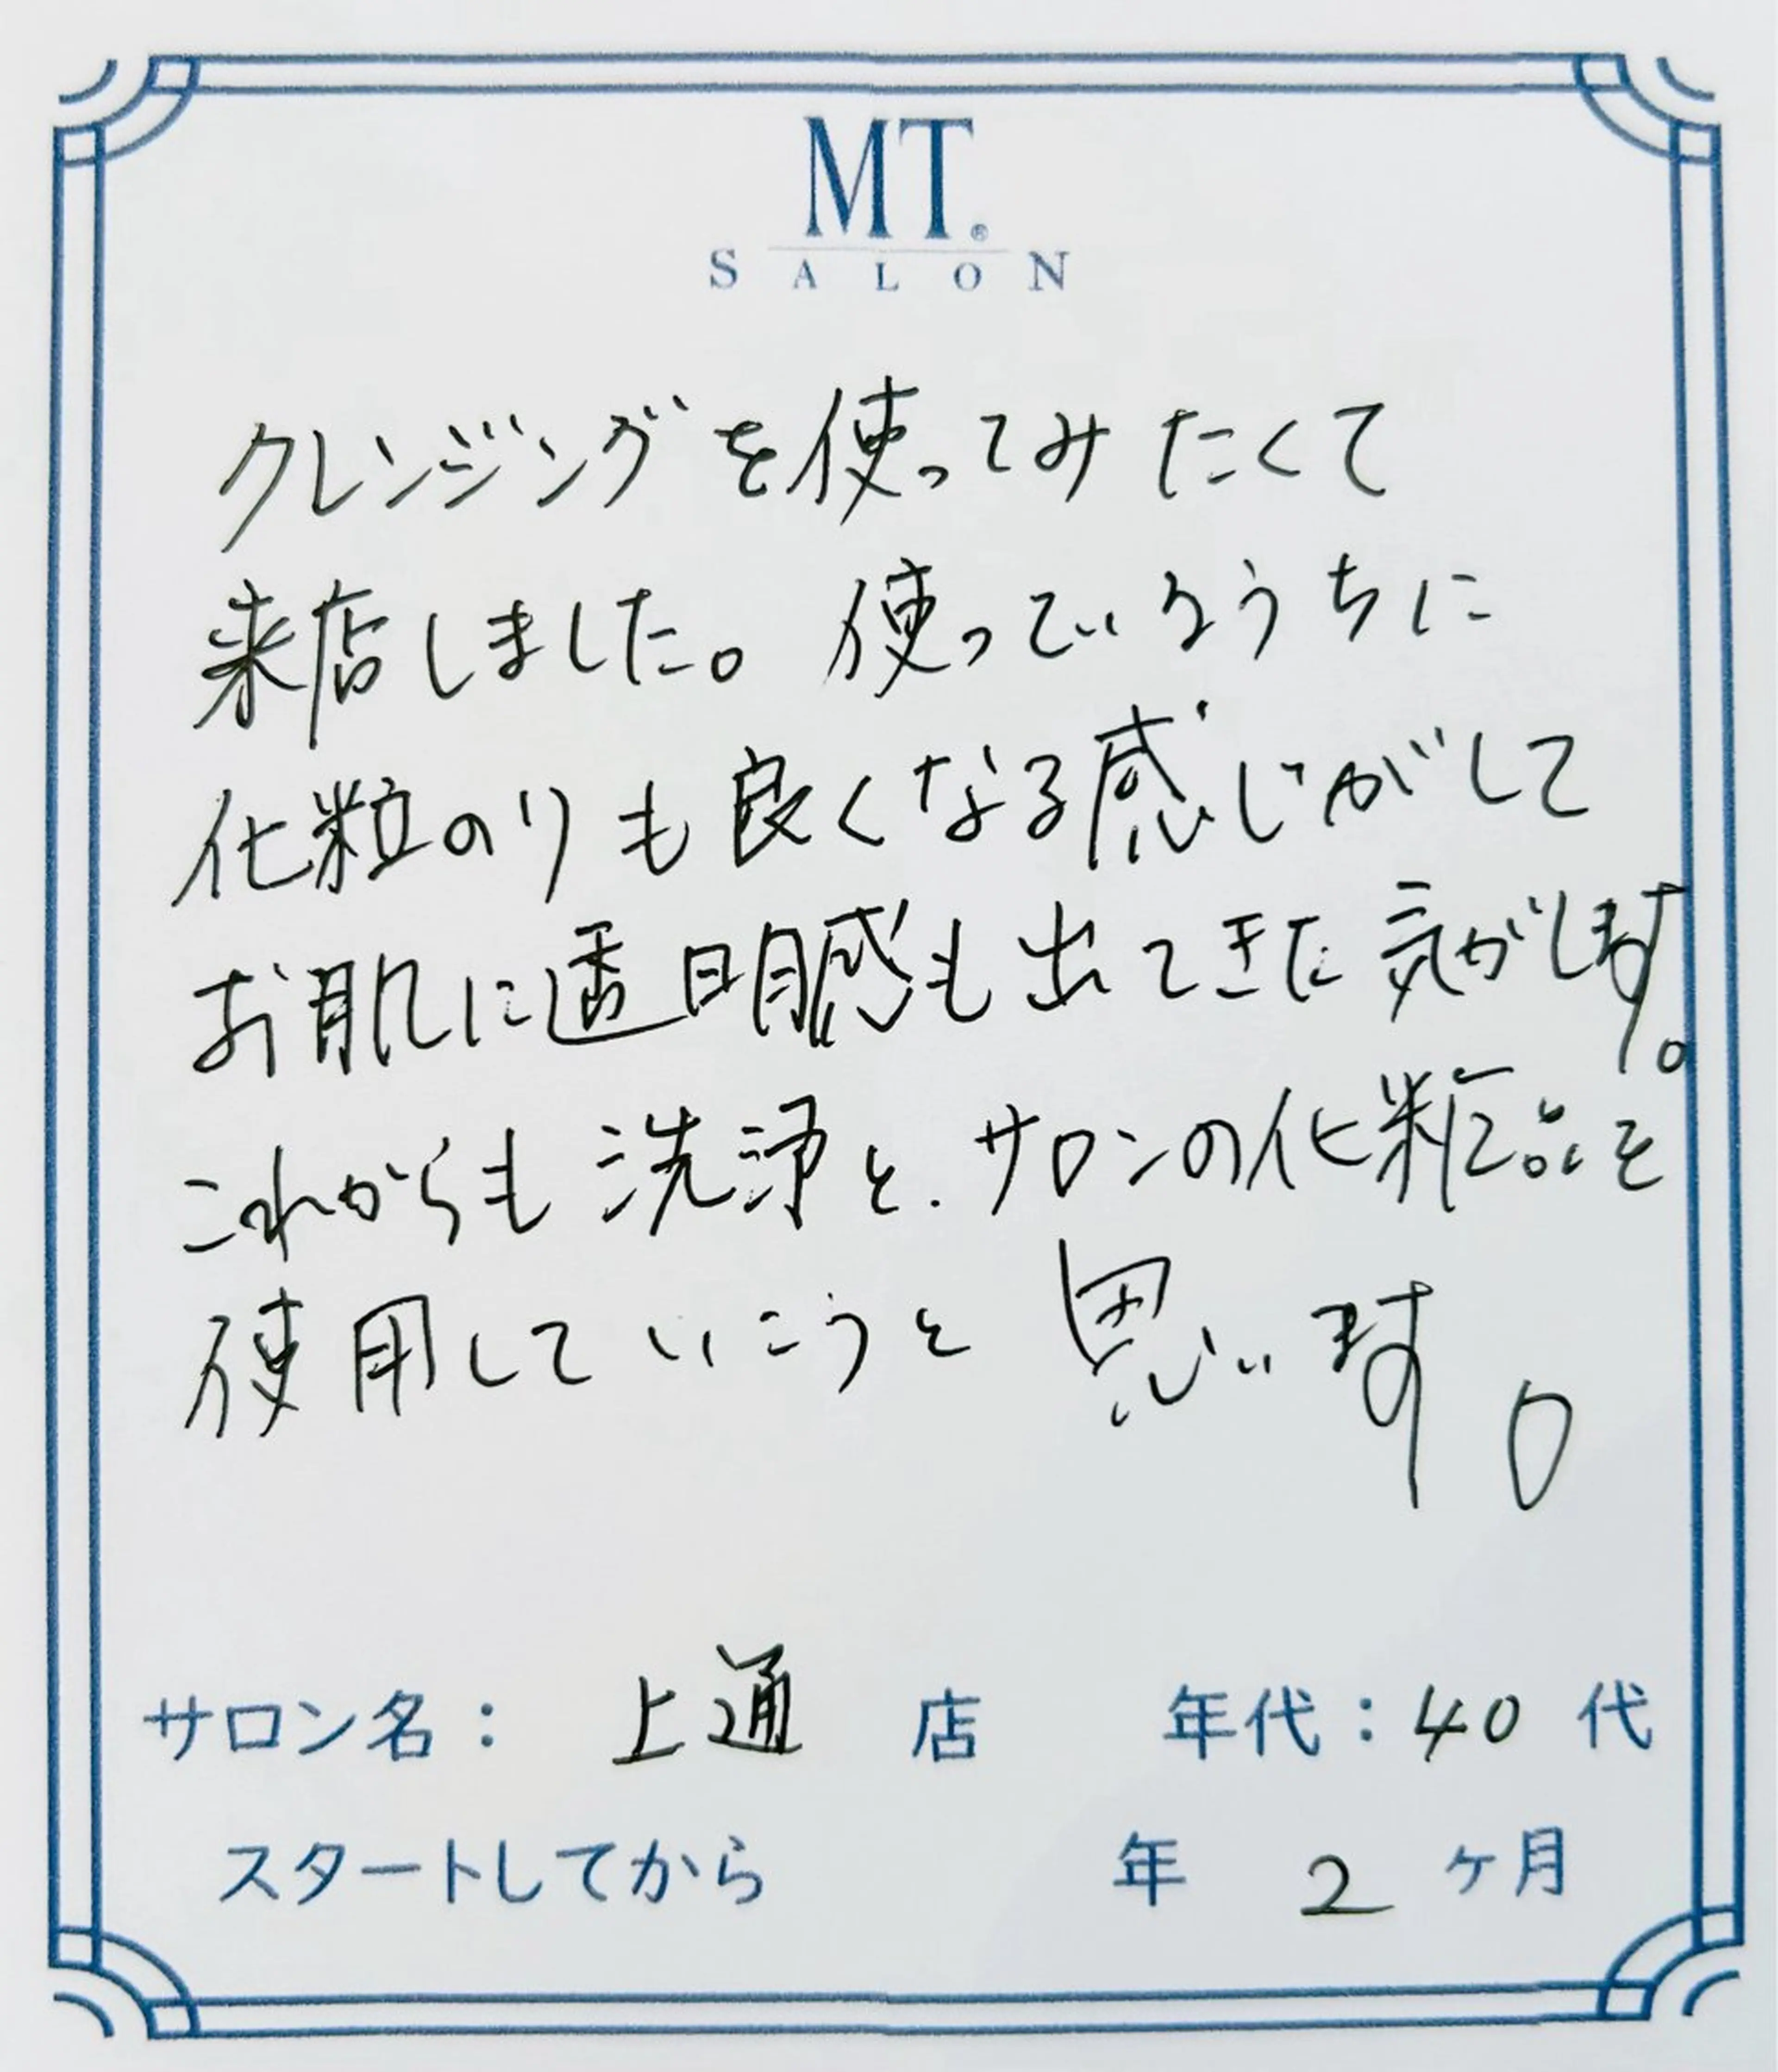 MT®
SALON
クレンジングを使ってみたくて
来店しました。使っているうちに
化粒のりも良くなる感じがして
お肌に透明感も出てきた気がします。
これからも洗浄と、サロンの化粧品を
使用していこうと思います。
サロン名： 上通 店 年代：40 代
スタートしてから 年 2 ヶ月